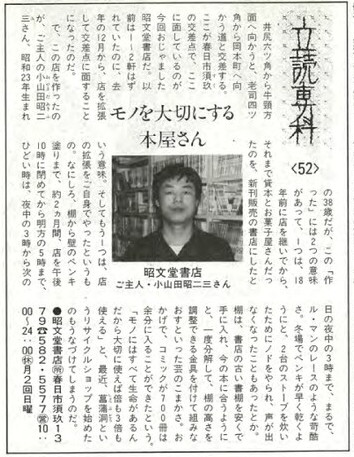 立読専科
〈52〉
モノを大切にする
本屋さん
井尻六ツ角から牛頸方
面へ向かうと、老司四ツ
角から岡本町へ向
かう道と交差する、
ここが春日市須玖
の交差点で、ここ
に面しているのが
今回おじゃました
昭文堂書店だ。以
前は1〜2軒はず
れていたのに、去
年の12月から、店を拡張
して交差点に面すること
になったのだ。
で、この店を作ったの
が、ご主人の小山田昭二
三さん。昭和23年生まれ
の38歳だが、この「作
った」には2つの意味
があって、1つは、18
年前に店を継いでから、
それまで貸本とお菓子屋さんだっ
たのを、新刊販売の書店にしたと
いう意味。そしてもう1つは、店
の拡張をご自身でやったというも
の。なにしろ、棚から壁のペンキ
塗りまで、約2ヵ月間、店を午後
10時に閉めてから明方の5時まで、
ひどい時は、夜中の3時から次の
昭文堂書店
ご主人・小山田昭二三さん
日の夜中の3時まで、まるで、
ル・マンのレースのような苛酷
さ。冬場でペンキが早く乾くよ
うにと、2台のストーブを炊い
たためにノドをやられ、声が出
なくなったこともあったとか。
棚は、書店の古い書棚を安くで
手に入れ、今の本に合うように
と、一度分解して、棚の高さを
調整できる金具を付けて組みな
おすといった芸のこまかさ。お
かげで、コミックが700冊は
余分に入ることができたという。
「モノにはすべて生命があるん
だから大切に使えば倍も3倍も
使える」と、最近、菖蒲洞とい
うリサイクルショップを始めた
のもうなづけてしまうのだ。
●昭文堂書店㊟春日市須玖13
79☎582・5577㊠10:
00〜24:00㊡月2回日曜